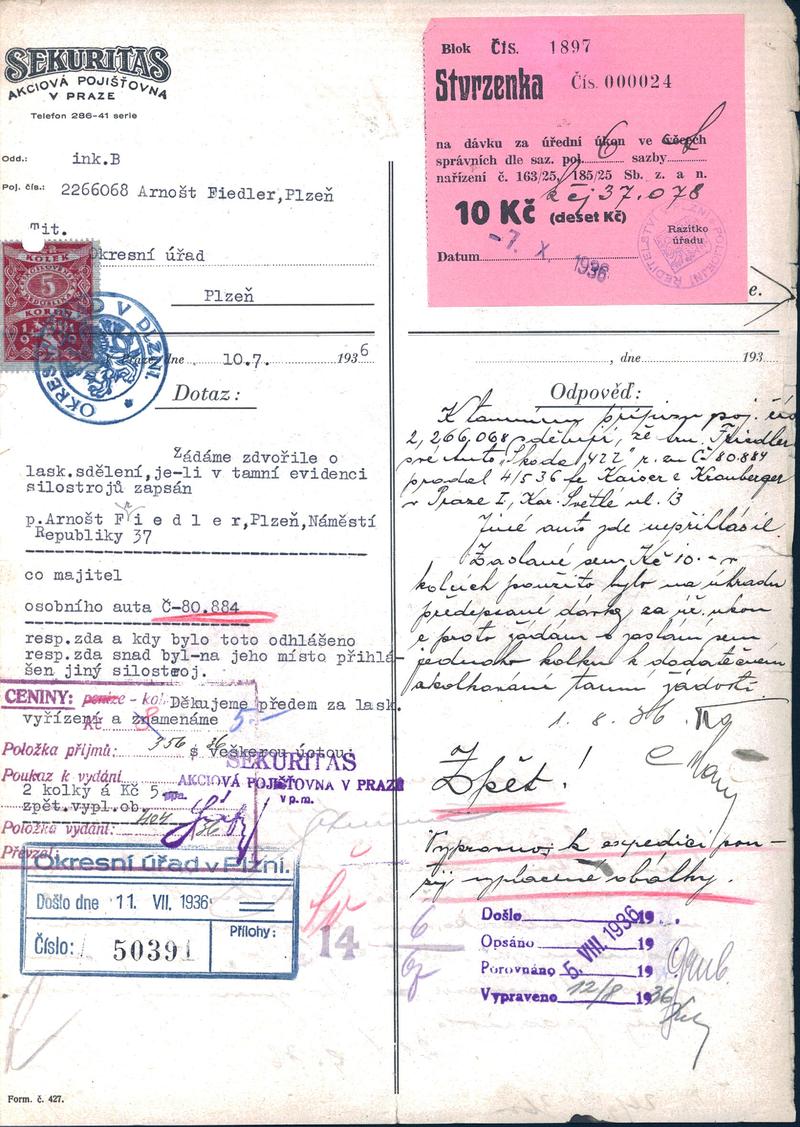 SEKURITAS
AKCIOVÁ POJIŠŤOVNA
V PRAZE
Telefon 286-41 serie
Odd.: ink.B
Poj. čís.: 2266068 Arnošt Fiedler,Plzeň
Tit.
Okresní úřad
Plzeň
KOLEK
5
dne 10.7. 1936
Dotaz:
Žádáme zdvořile o
lask.sdělení,je-li v tamní evidenci
silostrojů zapsán
p.Arnošt F i e d l e r,Plzeň,Náměstí
Republiky 37
co majitel
osobního auta Č-80.884
resp.zda a kdy bylo toto odhlášeno
resp.zda snad byl-na jeho místo přihlá-
šen jiný silostroj.
Děkujeme předem za lask.
vyřízení a znamenáme
s veškerou úctou:
2 kolky á Kč 5-
zpět.vypl.ob.
CENINY: peníze
Kč 8 5-
Položka příjmů: 356 36
Poukaz k vydání
Položka vydání: 404 36
Převzal:
SEKURITAS
AKCIOVÁ POJIŠŤOVNA V PRAZE
Okresní úřad v Plzni.
Došlo dne 11. VII. 1936
Číslo: 50391
Přílohy:
14
Form. č. 427.
Blok Čís. 1897
Stvrzenka Čís. 000024
na dávku za úřední úkon ve věcech
správních dle saz. pol. 6 sazby
nařízení č. 163/25, 185/25 Sb. z. a n.
k čj 37.078
10 Kč (deset Kč)
Datum -7. X. 1936
Razítko
úřadu
e.
, dne 193
Odpověď:
K tamnímu přípisu poj. čís
2,266,068 sděluji, že Arn. Friedler
své auto "Škoda 422" r. zn Č 80.884
prodal 4/5 36 fě Kaiser & Krauberger
v Praze I, Kar. Světlé ul. 13
Jiné auto zde nepřihlásil.
Zaslané sem Kč 10.- v
kolcích použito bylo na úhradu
předepsané dávky za úř. úkon
a proto žádám o zaslání sem
jednoho kolku k dodatečnému
okolkování tamní žádosti.
1. 8. 36.
Zpět!
Vypravno: k expedici pou-
žij vyplacené obálky.
Došlo 19
Opsáno 19
Porovnáno 5. VIII. 1936 19
Vypraveno 12/8 1936